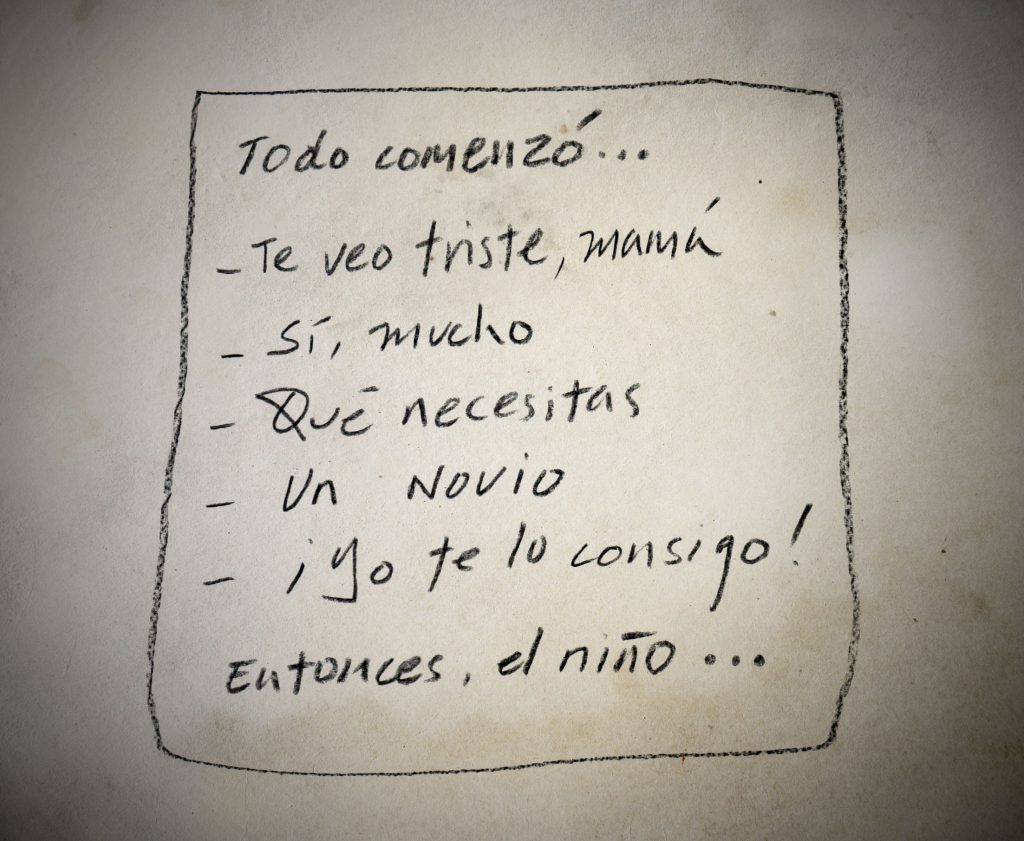 Todo comenzó...
- Te veo triste, mamá
- Sí, mucho
- Qué necesitas
- Un novio
- ¡Yo te lo consigo!
Entonces, el niño...